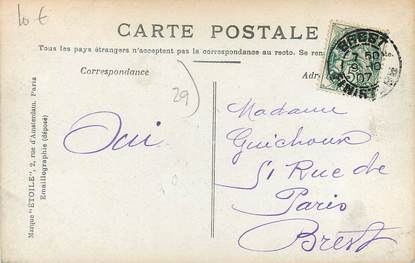 10 €
CARTE POSTALE
Tous les pays étrangers n'acceptent pas la correspondance au recto. Se ren
Correspondance
Adr
BREST
FINIST
29
Oui
Madame
Guichoux
51 Rue de
Paris
Brest
Marque "ÉTOILE", 2, rue d'Amsterdam, Paris
Emaillographie (déposé)